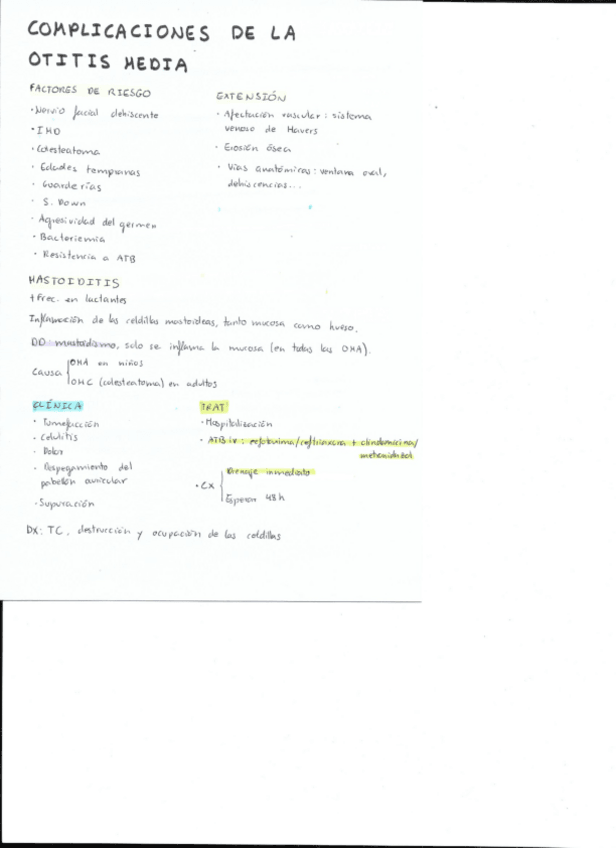 COMPLICACIONES DE LA
OTITIS MEDIA
FACTORES DE RIESGO
· Nervio facial dehiscente
· IMD
· Colesteatoma
· Edades tempranas
· Guarderías
· S. Down
· Agresividad del germen
· Bacteriemia
· Resistencia a ATB
EXTENSIÓN
· Afectación vascular: sistema
venoso de Havers
· Erosión ósea
· Vías anatómicas: ventana oval,
dehiscencias...
MASTOIDITIS
+ Frec. en lactantes
Inflamación de las celdillas mastoideas, tanto mucosa como hueso.
DD: mastoidismo, solo se inflama la mucosa (en todas las OMA).
Causa
OMA en niños
OMC (colesteatoma) en adultos
CLÍNICA
· Tumefacción
· Celulitis
· Dolor
· Despegamiento del
pabellón auricular
· Supuración
TRAT
· Hospitalización
· ATB iv: cefotaxima/ceftriaxona + clindamicina/
metronidazol
· CX
Drenaje inmediato
Esperar 48h
DX: TC, destrucción y ocupación de las celdillas